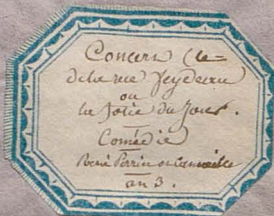 Concert (le-
de la rue Feydeau
ou
la folie du jour.
Comédie
René Perrin et Cammaille
an 3.